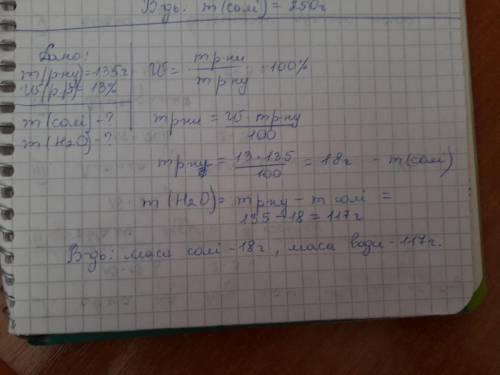 Вгдь. m(солі) = 250г
Дано:
m(р.ну) = 135г
W(р.р) = 13%
m(солі) - ?
m(H2O) - ?
W = mр.ни / mр.ну · 100%
mр.ни = W · mр.ну / 100
mр.ну = 13 · 135 / 100 = 18г - m(солі)
m(H2O) = mр.ну - m солі =
135 - 18 = 117г.
Вгдь: маса солі - 18г, маса води - 117г.